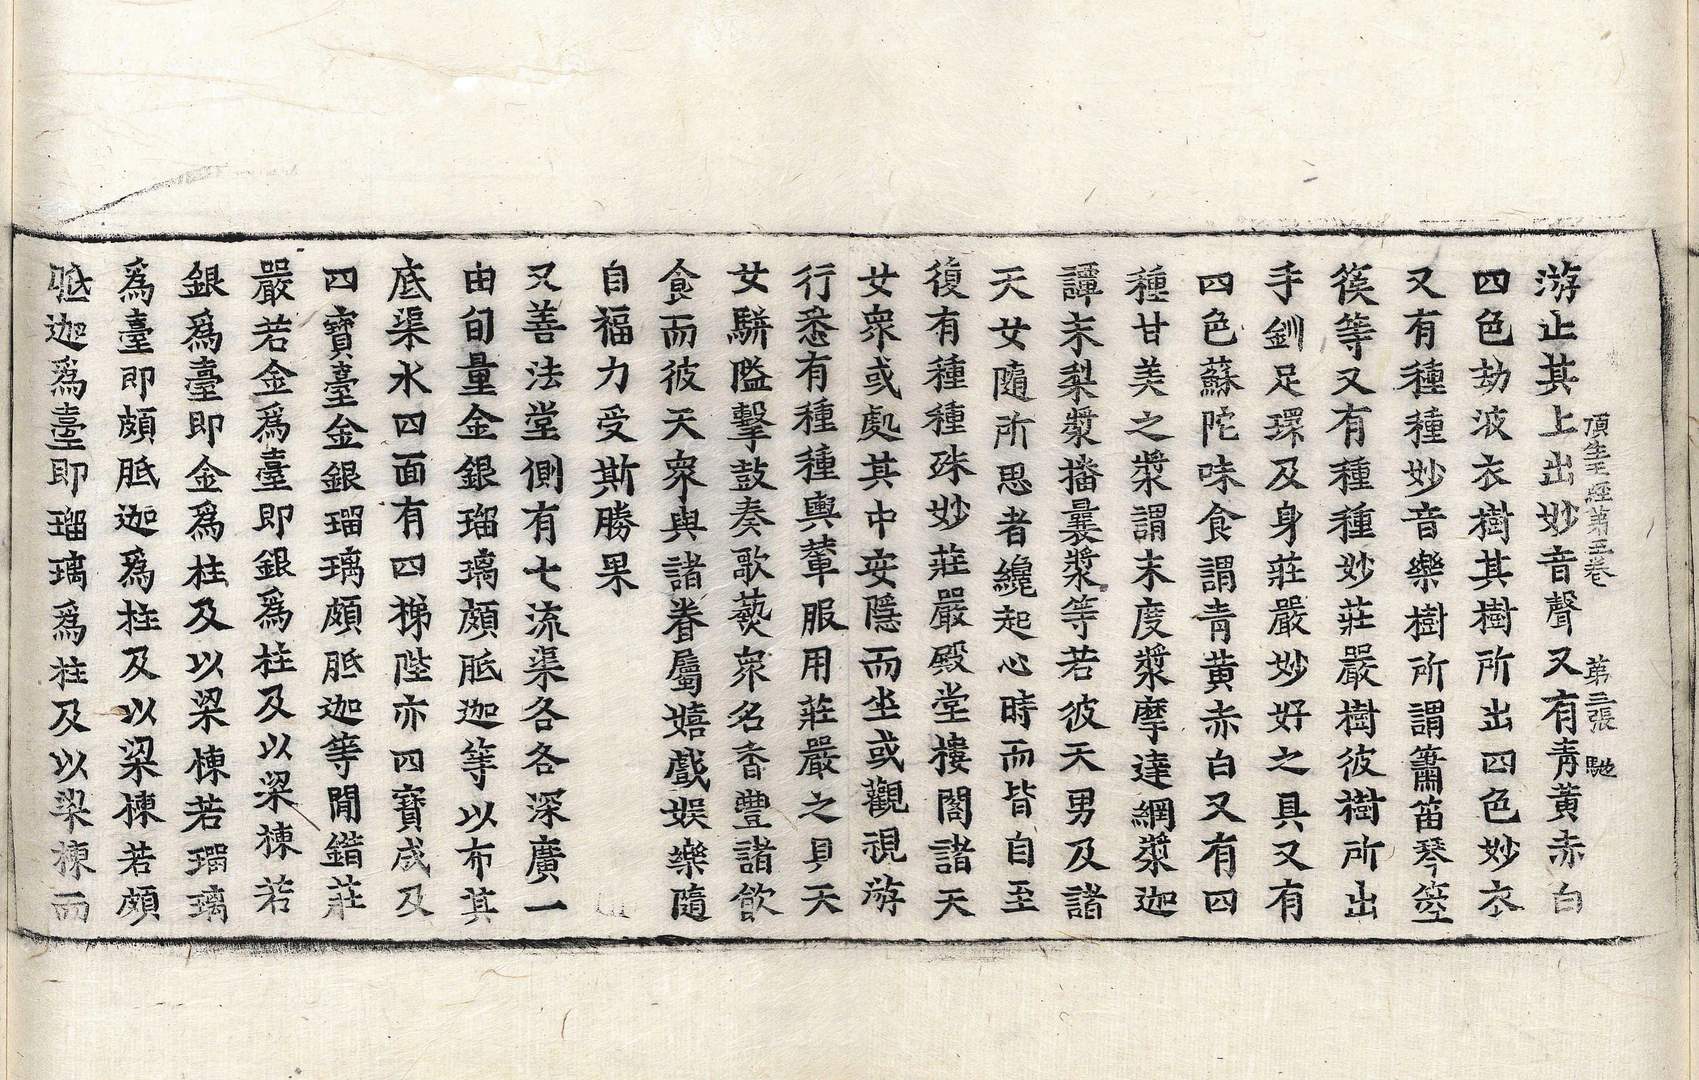 頂生王經第三卷 第二張 馳
游止其上出妙音聲又有青黃赤白
四色劫波衣樹其樹所出四色妙衣
又有種種妙音樂樹所謂簫笛琴箜
篌等又有種種妙莊嚴樹彼樹所出
手釧足環及身莊嚴妙好之具又有
四色蘇陀味食謂青黃赤白又有四
種甘美之漿謂末度漿摩達網漿迦
譚末梨漿播曩漿等若彼天男及諸
天女隨所思者纔起心時而皆自至
復有種種殊妙莊嚴殿堂樓閣諸天
女衆或處其中安隱而坐或觀視游
行悉有種種輿輦服用莊嚴之具天
女駢隘擊鼓奏歌藝衆名香豐諸飲
食而彼天衆與諸眷屬嬉戲娛樂隨
自福力受斯勝果
又善法堂側有七流渠各各深廣一
由旬量金銀瑠璃頗胝迦等以布其
底渠水四面有四梯陛亦四寶成及
四寶臺金銀瑠璃頗胝迦等閒鍇莊
嚴若金爲臺即銀爲柱及以梁棟若
銀爲臺即金爲柱及以梁棟若瑠璃
爲臺即頗胝迦爲柱及以梁棟若頗
胝迦爲臺即瑠璃爲柱及以梁棟而